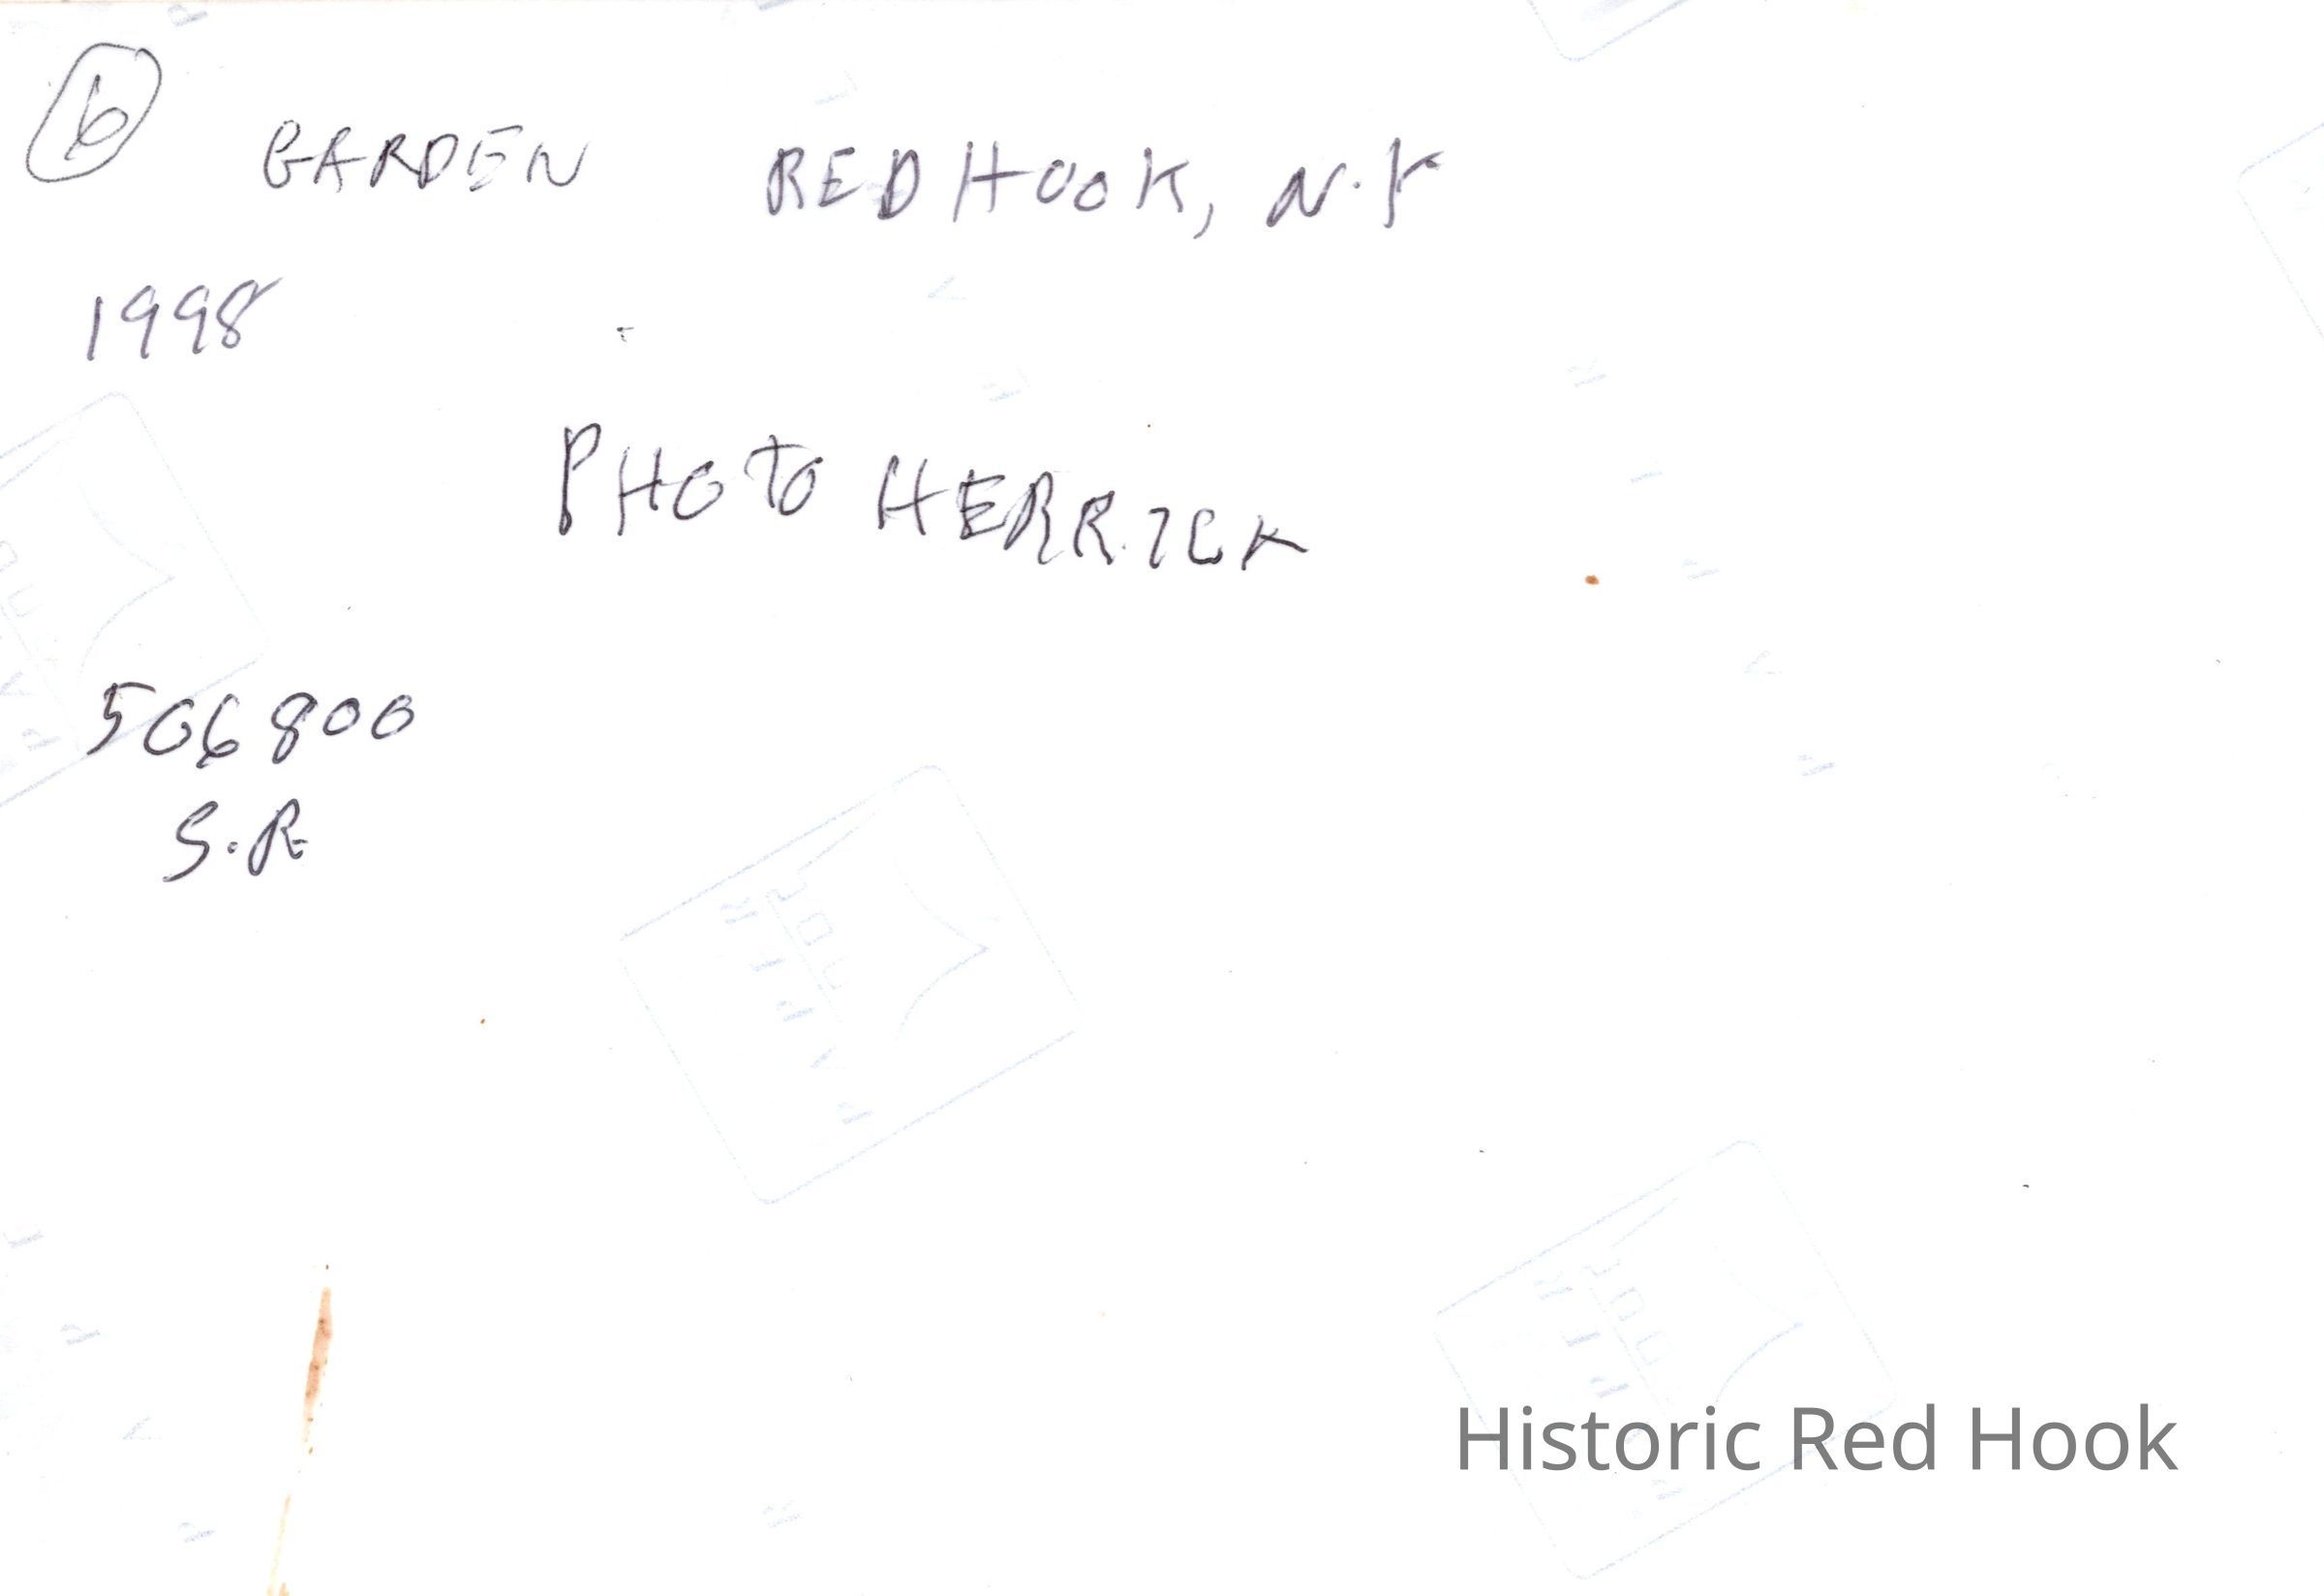 6 GARDEN RED HOOK, N.Y
1998
PHOTO HERRICK
506800
S.R
Historic Red Hook